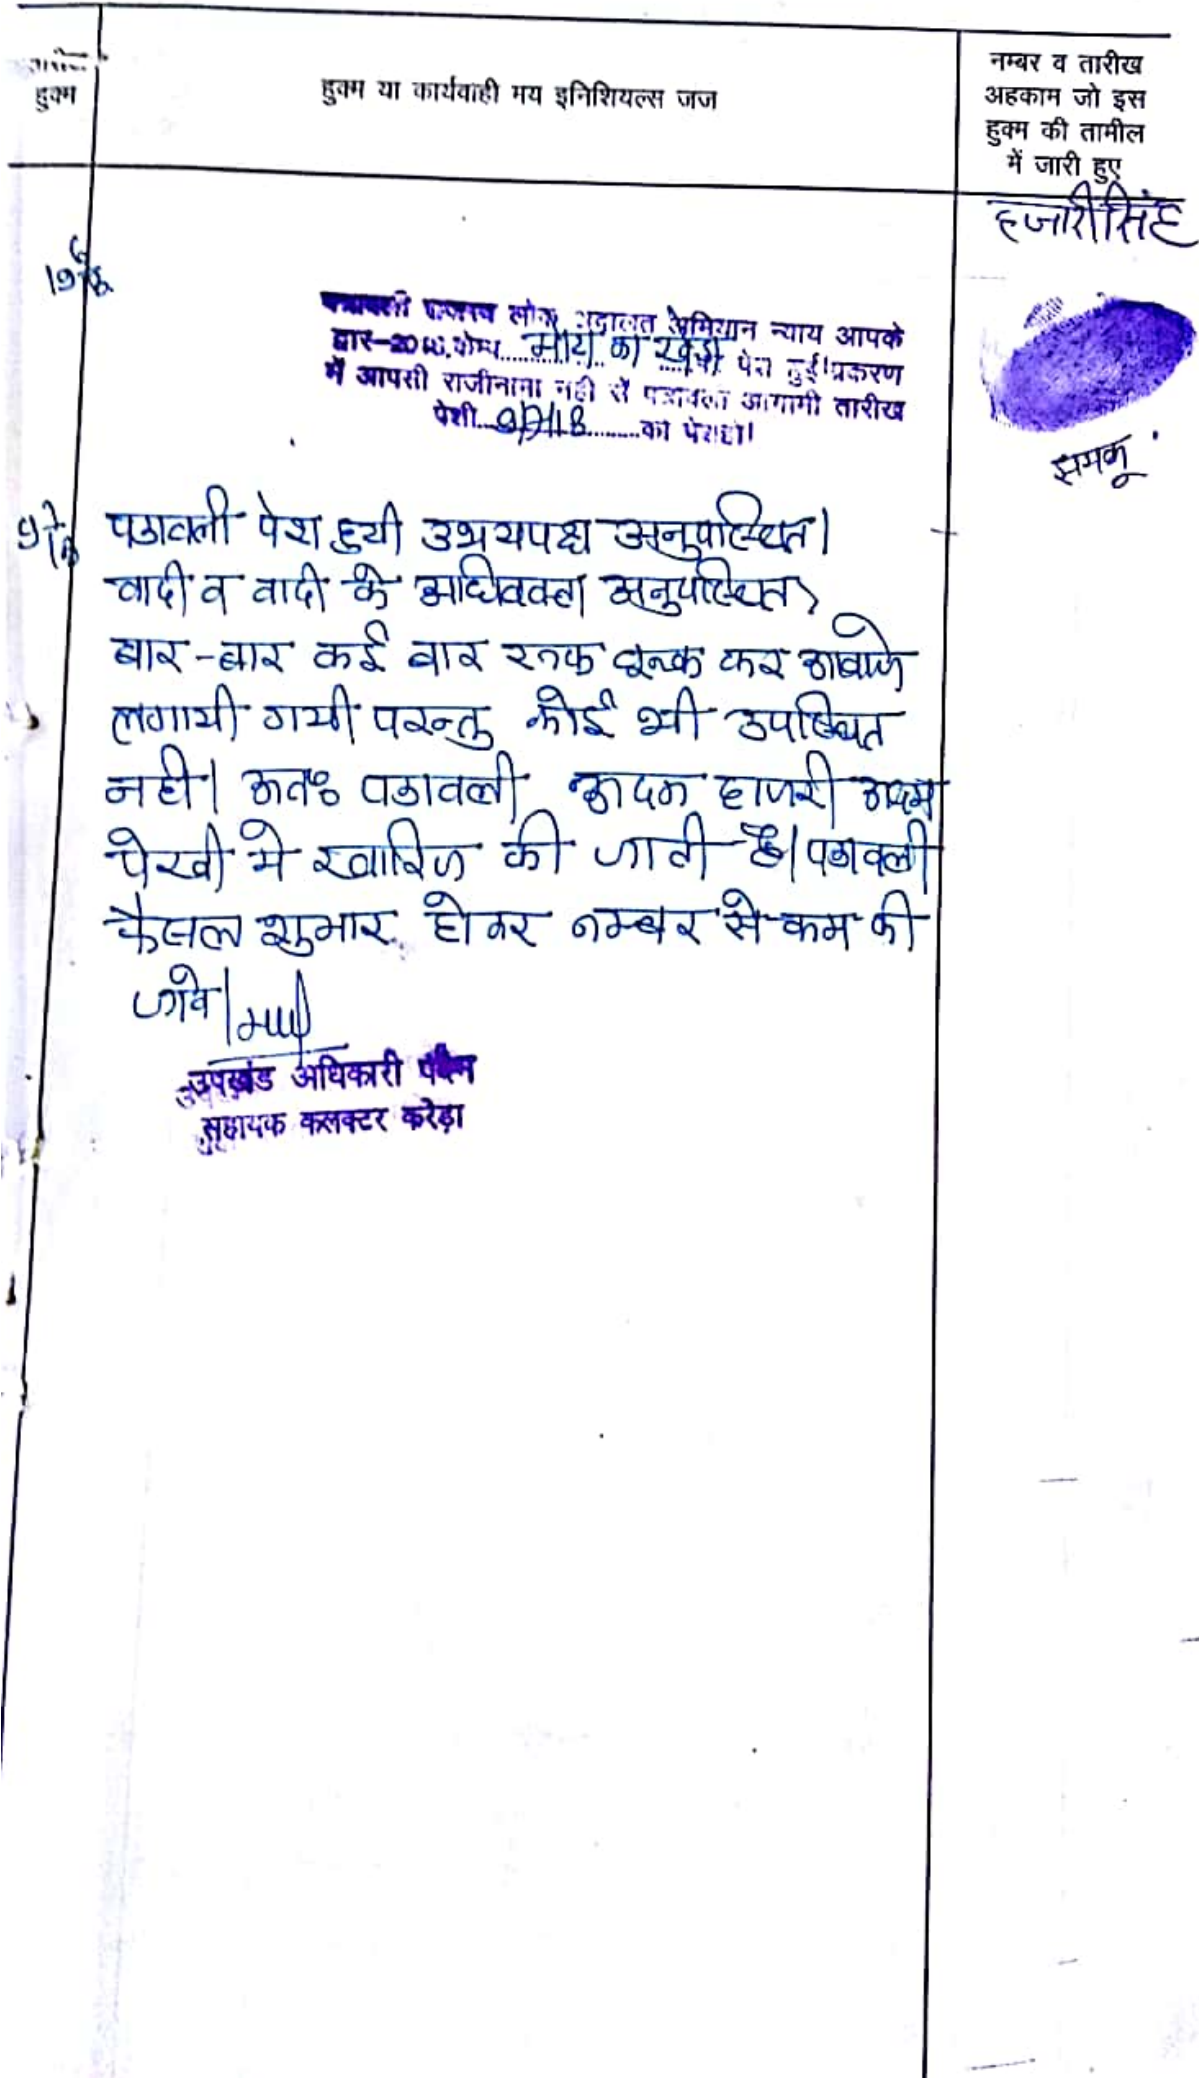 तारीख
हुक्म
हुक्म या कार्यवाही मय इनिशियल्स जज
नम्बर व तारीख
अहकाम जो इस
हुक्म की तामील
में जारी हुए
हजारीसिंह
19/6/18
लोक अदालत अभियान न्याय आपके
द्वार-2018 केम्प पेश हुई। प्रकरण
में आपसी राजीनामा नही से पत्रावली आगामी तारीख
पेशी 9/7/18 को पेश हो।
झमकू
9/7/18
पत्रावली पेश हुयी उभयपक्ष अनुपस्थित।
वादी व वादी के अधिवक्ता अनुपस्थित
बार-बार कई बार रूक रूक कर आवाजे
लगायी गयी परन्तु कोई भी उपस्थित
नही। अतः पत्रावली अदम हाजरी अदम
पेरवी मे खारिज की जाती है। पत्रावली
फैसल शुमार होकर नम्बर से कम की
जावे।
उपखंड अधिकारी पदेन
सहायक कलक्टर करेड़ा